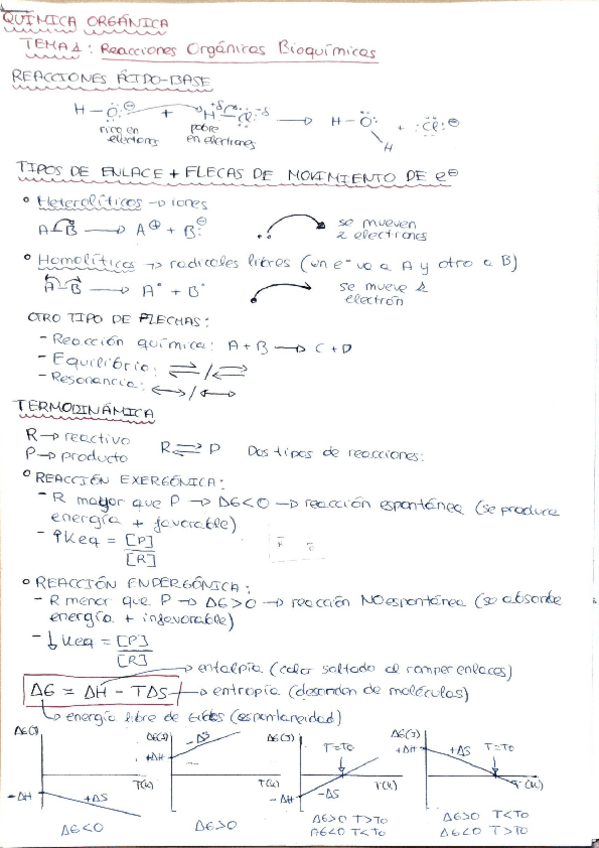 QUÍMICA ORGÁNICA
TEMA 1: Reacciones Orgánicas Bioquímicas
REACCIONES ÁCIDO-BASE
H-Ö:⊖ + H-Cl: → H-Ö: + :Cl:⊖
H
rico en electrones
pobre en electrones
TIPOS DE ENLACE + FLECAS DE MOVIMIENTO DE e⊖
° Heterolíticos → iones
A-B → A⊕ + B:⊖ se mueven 2 electrones
° Homolíticos → radicales libres (un e⁻ va a A y otro a B)
A-B → A• + B• se mueve 1 electrón
OTRO TIPO DE FLECHAS:
- Reacción química: A + B → C + D
- Equilibrio: ⇌ / ⇌
- Resonancia: ↔ / ↔
TERMODINÁMICA
R → reactivo
P → producto
R ⇌ P Dos tipos de reacciones:
° REACCIÓN EXERGÓNICA:
- R mayor que P → ΔG<0 → reacción espontánea (se produce
energía + favorable)
- ↑Keq = [P]
[R]
° REACCIÓN ENDERGÓNICA:
- R menor que P → ΔG>0 → reacción NO espontánea (se absorbe
energía + infavorable)
- ↓Keq = [P]
[R]
→ entalpía (calor soltado al romper enlaces)
ΔG = ΔH - TΔS → entropía (desorden de moléculas)
→ energía libre de Gibbs (espontaneidad)
ΔG(J) -ΔH +ΔS T(K) ΔG<0
ΔG(J) +ΔH -ΔS T(K) ΔG>0
ΔG(J) T=T0 -ΔH -ΔS T(K) ΔG>0 T>T0
ΔG<0 T<T0
ΔG(J) +ΔH +ΔS T=T0 T(K) ΔG>0 T<T0
ΔG<0 T>T0